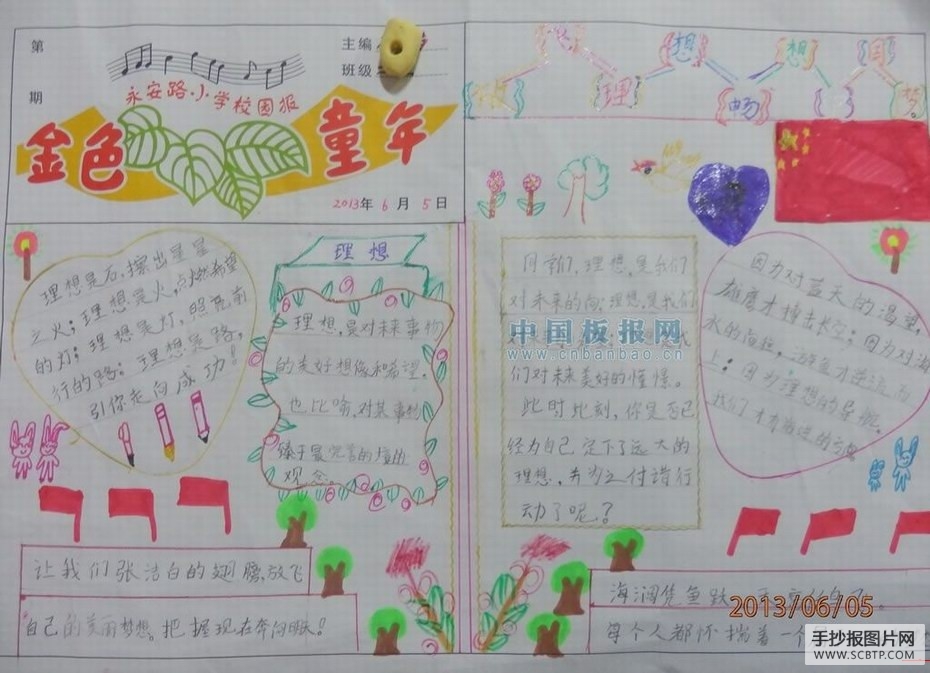 第
期
主编
班级
永安路小学校园报
金色
童年
2013年 6 月 5 日
理想是石,擦出星星
之火;理想是火,点燃希望
的灯;理想是灯,照亮前
行的路;理想是路,
引你走向成功!
理想
理想,是对未来事物
的美好想像和希望,
也比喻对某事物
臻于最完善的境的
观念。
让我们张洁白的翅膀,放飞
自己的美丽梦想。把握现在奔向明天!
理
想
畅
想
梦
同学们,理想,是我们
对未来的 理想,是我们
们对未来美好的憧憬。
此时此刻,你是否已
经为自己定下了远大的
理想,并为之付诸行
动了呢?
因为对蓝天的渴望,
雄鹰才搏击长空;因为对海
水的 游鱼才逆流而
上;因为理想的导航,
我们才有前进的方向
海阔凭鱼跃
每个人都怀揣着一个
中国板报网
www.cnbanbao.cn
2013/06/05
手抄报图片网
WWW.SCBTP.COM